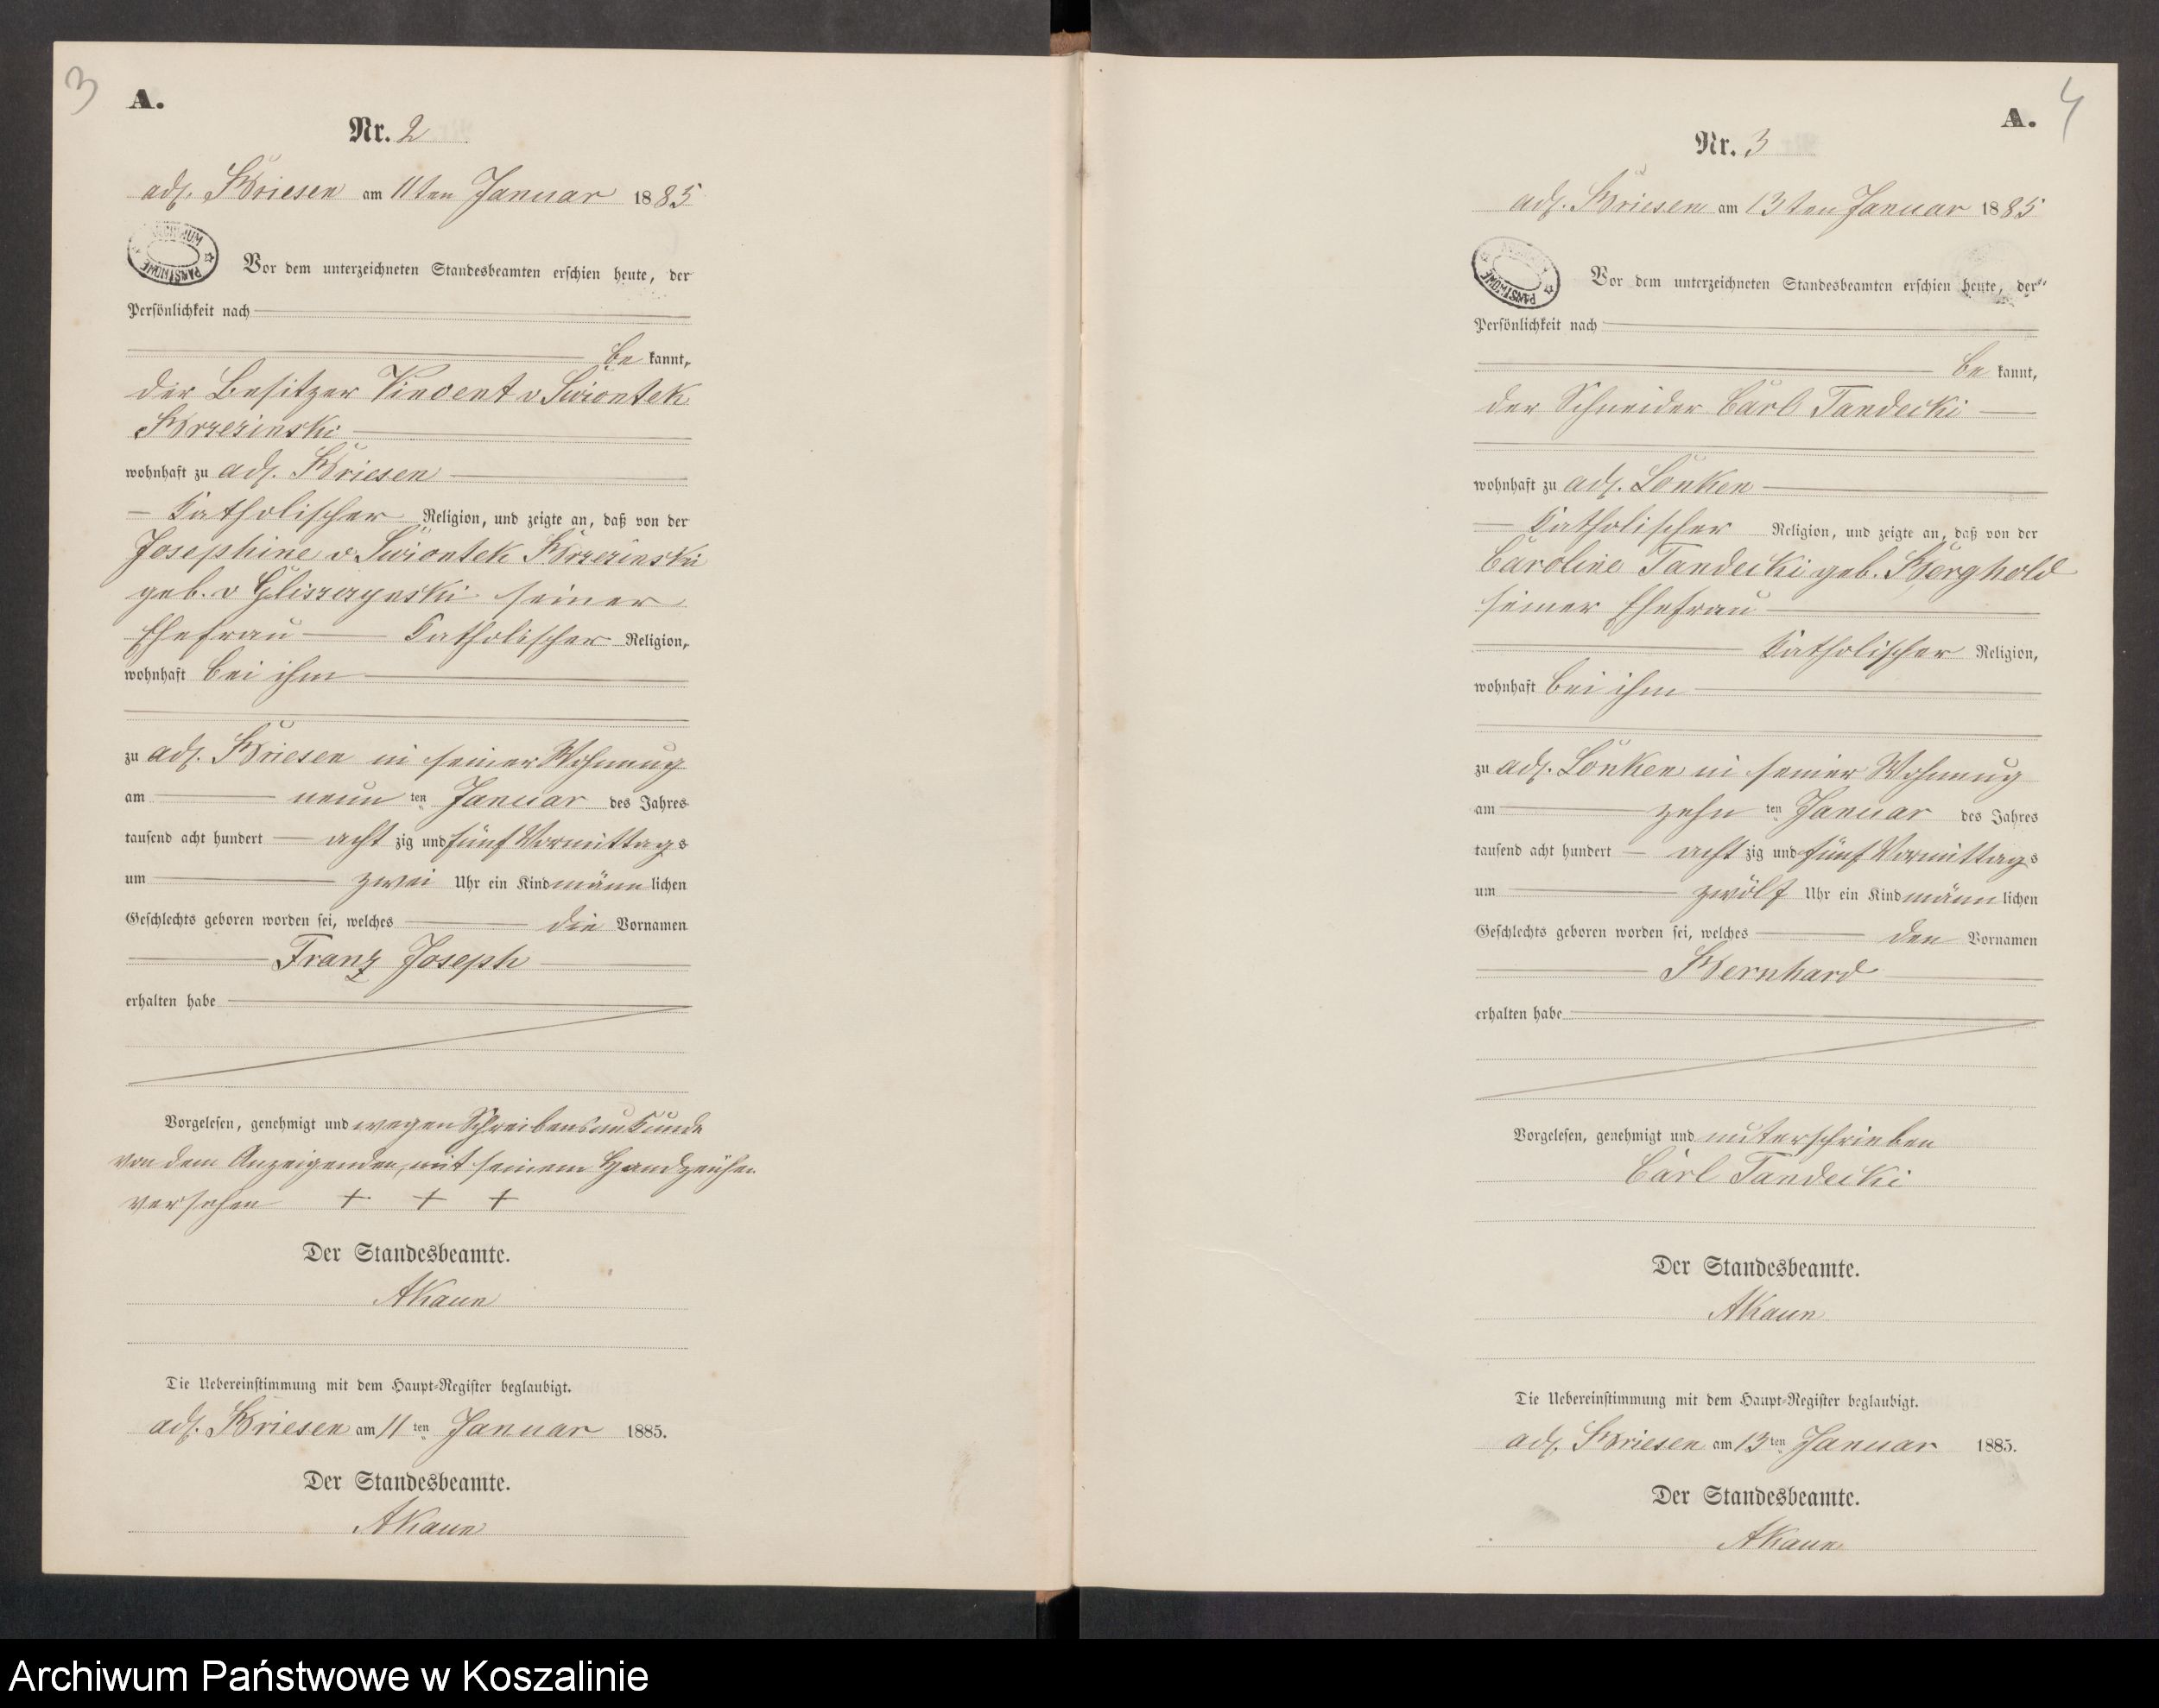 3
A.
Nr. 2
adl. Briesen am 11ten Januar 1885
Vor dem unterzeichneten Standesbeamten erschien heute, der
Persönlichkeit nach
be kannt,
der Besitzer Vincent v Swiontek
Brzezinski
wohnhaft zu adl. Briesen
Katholischer Religion, und zeigte an, daß von der
Josephine v. Swiontek Brzezinski
geb. v Gliszczynski seiner
Ehefrau Katholischer Religion,
wohnhaft bei ihm
zu adl. Briesen in seiner Wohnung
am neun ten Januar des Jahres
tausend acht hundert acht zig und fünf Vormittags
um zwei Uhr ein Kind männ lichen
Geschlechts geboren worden sei, welches die Vornamen
Franz Joseph
erhalten habe
Vorgelesen, genehmigt und wegen Schreibensunkunde
von dem Anzeigenden mit seinem Handzeichen
versehen + + +
Der Standesbeamte.
AKaun
Die Uebereinstimmung mit dem Haupt-Register beglaubigt.
adl. Briesen am 11 ten Januar 1885.
Der Standesbeamte.
AKaun
4
A.
Nr. 3
adl. Briesen am 13ten Januar 1885
Vor dem unterzeichneten Standesbeamten erschien heute, der
Persönlichkeit nach
be kannt,
der Schneider Carl Tandecki
wohnhaft zu adl. Lonken
Katholischer Religion, und zeigte an, daß von der
Caroline Tandecki geb. Berghold
seiner Ehefrau
Katholischer Religion,
wohnhaft bei ihm
zu adl. Lonken in seiner Wohnung
am zehn ten Januar des Jahres
tausend acht hundert acht zig und fünf Vormittags
um zwölf Uhr ein Kind männ lichen
Geschlechts geboren worden sei, welches den Vornamen
Bernhard
erhalten habe
Vorgelesen, genehmigt und unterschrieben
Carl Tandecki
Der Standesbeamte.
AKaun
Die Uebereinstimmung mit dem Haupt-Register beglaubigt.
adl. Briesen am 13 ten Januar 1885.
Der Standesbeamte.
AKaun
Archiwum Państwowe w Koszalinie